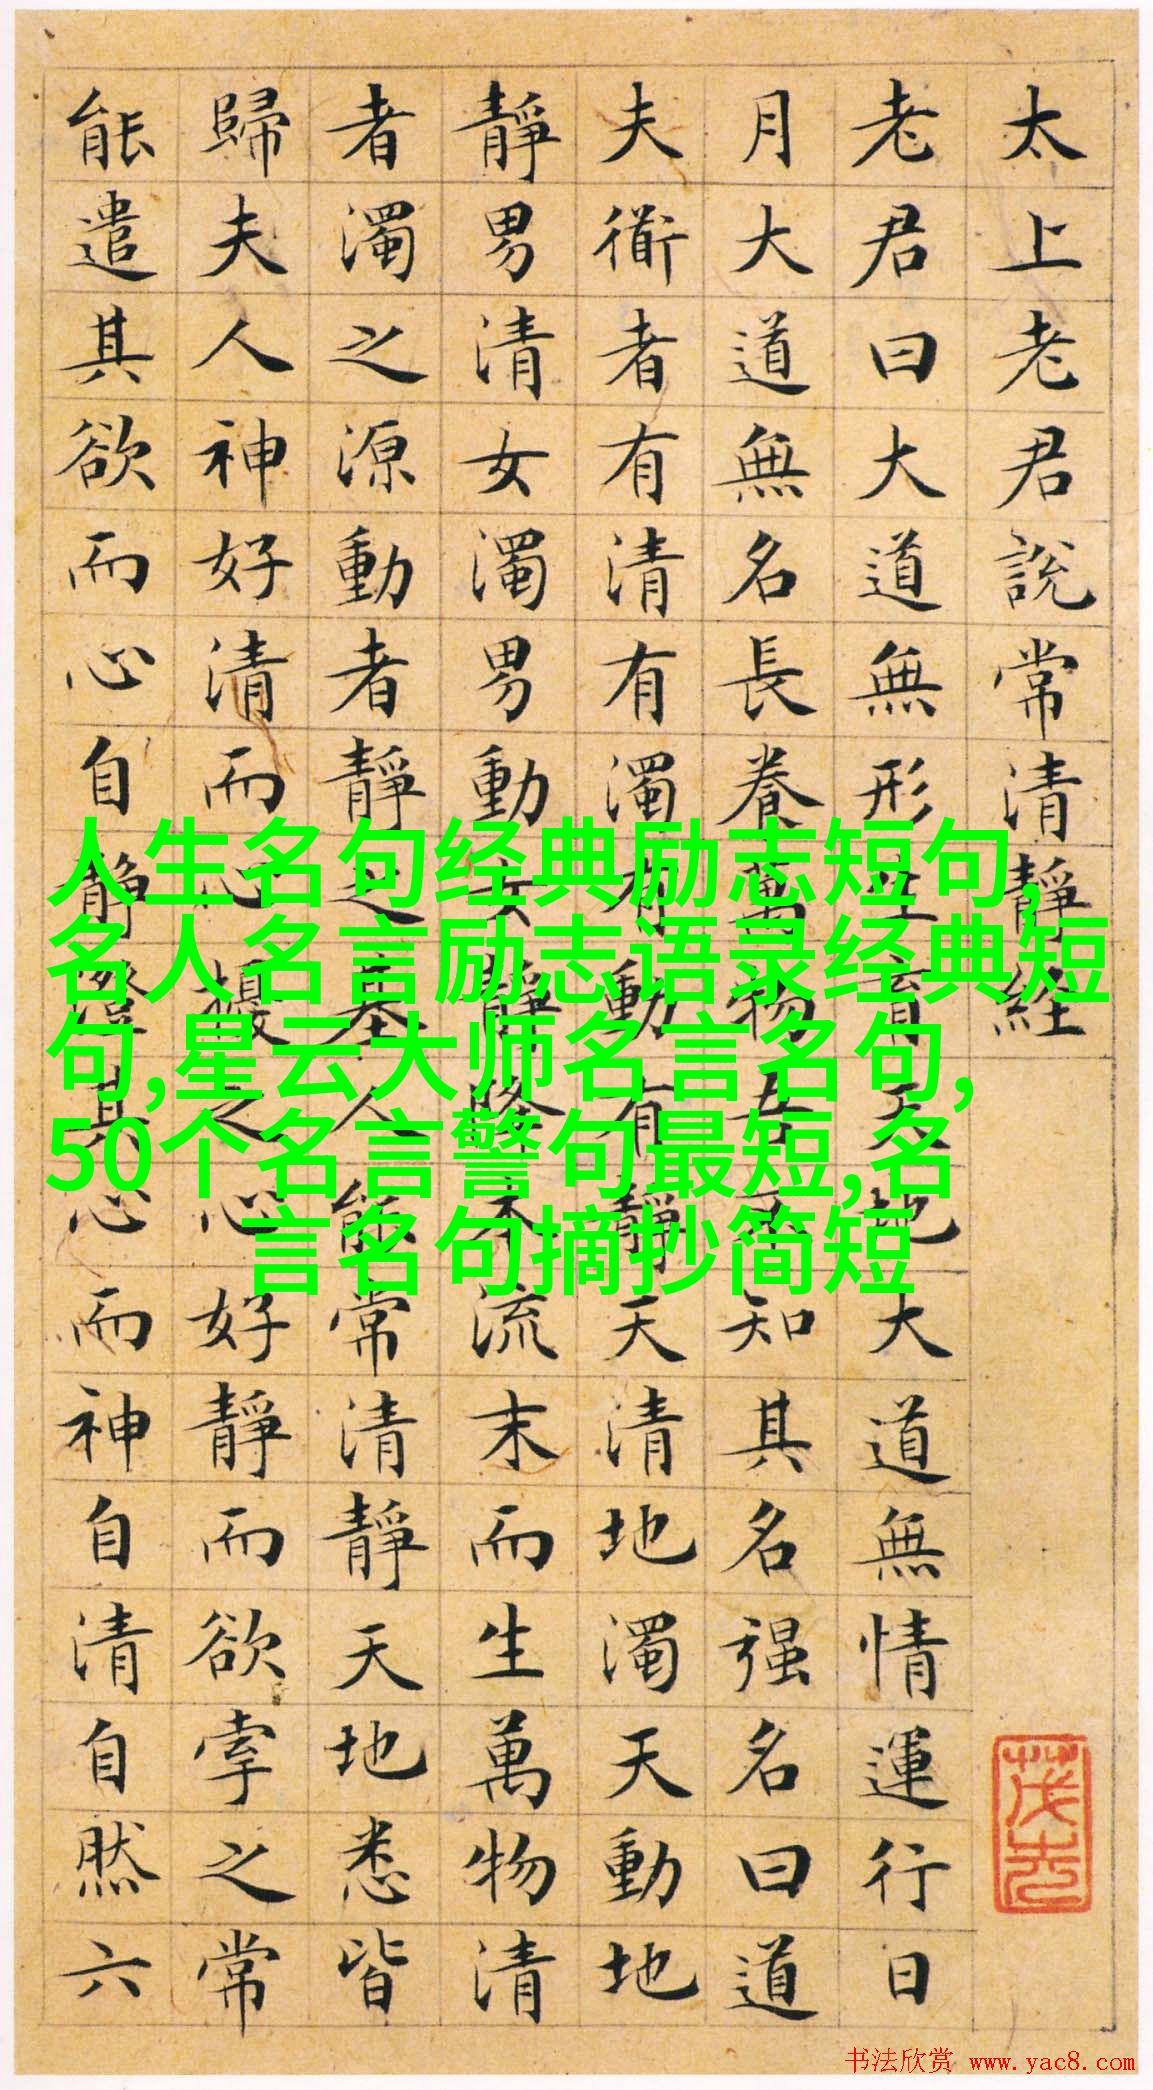 太上老君說常清靜經
老君曰大道無形生育天地大道無情運行日
月大道無名長養萬物吾不知其名强名曰道
夫衜者有清有濁有動有靜天清地濁天動地
靜男清女濁男動女靜降本流末而生萬物清
者濁之源動者靜之基人能常清靜天地悉皆
歸夫人神好清而心擾之心好靜而欲牽之常
能遣其欲而心自靜澄其心而神自清自然六
人生名句经典励志短句,
名人名言励志语录经典短
句,星云大师名言名句,
50个名言警句最短,名
言名句摘抄简短
书法欣赏 www.yac8.com